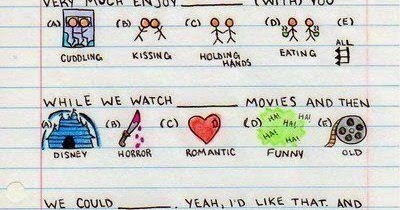 VERY MUCH ENJOY ______ (WITH) YOU
(A) (B) (C) (D) (E)
ALL
CUDDLING KISSING HOLDING HANDS EATING
WHILE WE WATCH ______ MOVIES AND THEN
(A) (B) (C) (D) (E)
HA! HA! HA! HA! HA!
DISNEY HORROR ROMANTIC FUNNY OLD
WE COULD ______. YEAH, I'D LIKE THAT. AND